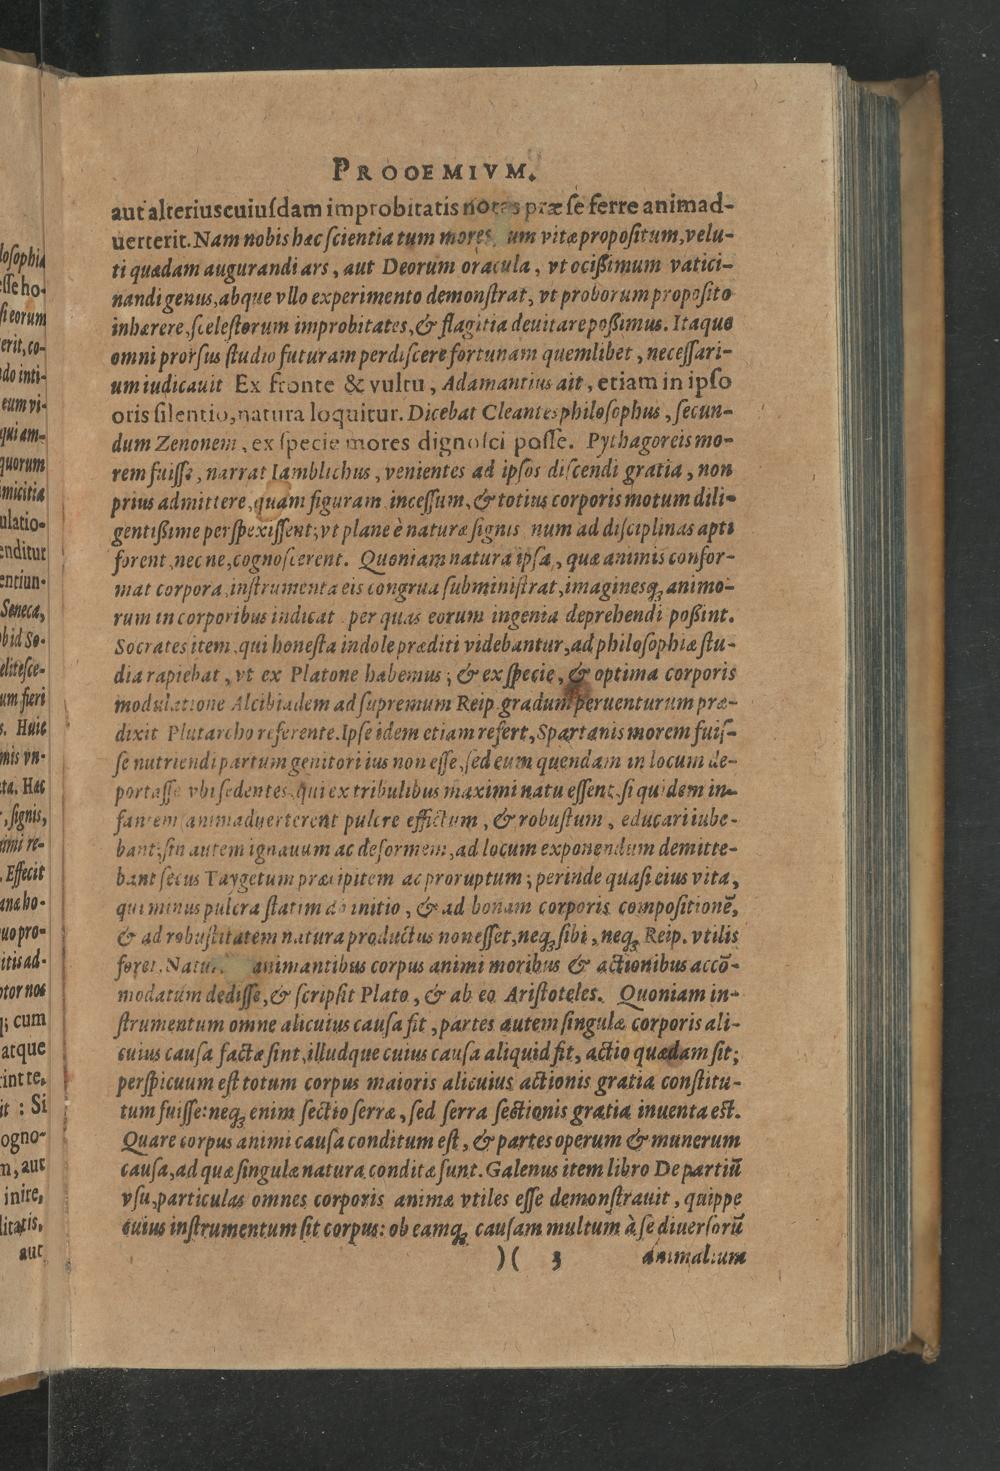 PROOEMIVM.
aut alterius cuiuſdam improbitatis notas præ ſe ferre animad-
uerterit. Nam nobis hæc ſcientia tum mores, um vitæ propoſitum, velu-
ti quædam augurandi ars, aut Deorum oracula, vt ocißimum vatici-
nandi genus, abque vllo experimento demonſtrat, vt proborum propoſito
inhærere, ſceleſtorum improbitates, & flagitia deuitare poßimus. Itaque
omni prorſus ſtudio futuram perdiſcere fortunam quemlibet, neceſſari-
um iudicauit Ex fronte & vultu, Adamantius ait, etiam in ipſo
oris ſilentio, natura loquitur. Dicebat Cleantes philoſophus, ſecun-
dum Zenonem, ex ſpecie mores dignoſci poſſe. Pythagoreis mo-
rem fuiſſe, narrat Iamblichus, venientes ad ipſos diſcendi gratia, non
prius admittere, quam figuram inceſſum, & totius corporis motum dili-
gentißime perſpexiſſent; vt plane è naturæ ſignis num ad diſciplinas apti
forent, nec ne, cognoſcerent. Quoniam natura ipſa, quæ animis confor-
mat corpora, inſtrumenta eis congrua ſubminiſtrat, imaginesq́; animo-
rum in corporibus indicat per quas eorum ingenia deprehendi poßint.
Socrates item, qui honeſta indole præditi videbantur, ad philoſophiæ ſtu-
dia rapiebat, vt ex Platone habemus; & ex ſpecie, & optima corporis
modulatione Alcibiadem ad ſupremum Reip. gradum peruenturum præ-
dixit Plutarcho referente. Ipſe idem etiam refert, Spartanis morem fuiſ-
ſe nutriendi partum genitori ius non eſſe, ſed eum quendam in locum de-
portaſſe vbi ſedentes, qui ex tribulibus maximi natu eſſent, ſi quidem in-
fantem animaduerterent pulcre effictum, & robuſtum, educari iube-
bant; ſin autem ignauum ac deformem, ad locum exponendum demitte-
bant ſecus Taygetum præcipitem ac proruptum; perinde quaſi eius vita,
qui minus pulcra ſtatim ab initio, & ad bonam corporis compoſitionẽ,
& ad robuſtitatem natura productus non eſſet, neq́; ſibi, neq́; Reip. vtilis
foret. Natur animantibus corpus animi moribus & actionibus accõ-
modatum dediſſe, & ſcripſit Plato, & ab eo Ariſtoteles. Quoniam in-
ſtrumentum omne alicuius cauſa fit, partes autem ſingulæ corporis ali-
cuius cauſa factæ ſint, illudque cuius cauſa aliquid fit, actio quædam ſit;
perſpicuum eſt totum corpus maioris alicuius actionis gratia conſtitu-
tum fuiſſe: neq́; enim ſectio ſerræ, ſed ſerra ſectionis gratia inuenta eſt.
Quare corpus animi cauſa conditum eſt, & partes operum & munerum
cauſa, ad quæ ſingulæ natura conditæ ſunt. Galenus item libro De partiũ
vſu, particulas omnes corporis animæ vtiles eſſe demonſtrauit, quippe
cuius inſtrumentum ſit corpus: ob eamq́; cauſam multum à ſe diuerſorũ
)( 3 animalium
loſophia
eſſe ho-
ſi eorum
erit, co-
do inti-
eum vi-
qui am-
quorum
imicitia
ulatio-
enditur
entiun-
Seneca,
bid So-
eliteſce-
um fieri
s. Huic
mis vn-
ta. Hæc
, ſignis,
nimi re-
. Effecit
ana ho-
uo pro-
itis ad-
tor nos
q; cum
atque
int te,
it : Si
ogno-
m, aut
inire,
litatis,
aut